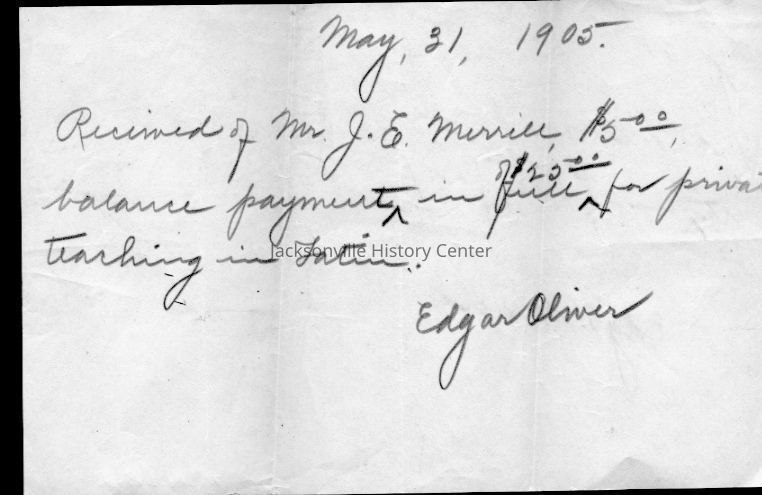 May, 31, 1905.
Received of Mr. J. E. Merrill, $5.00,
balance payment, in full ^ of $25.00 for privat
teaching in Latin.
Jacksonville History Center
Edgar Oliver